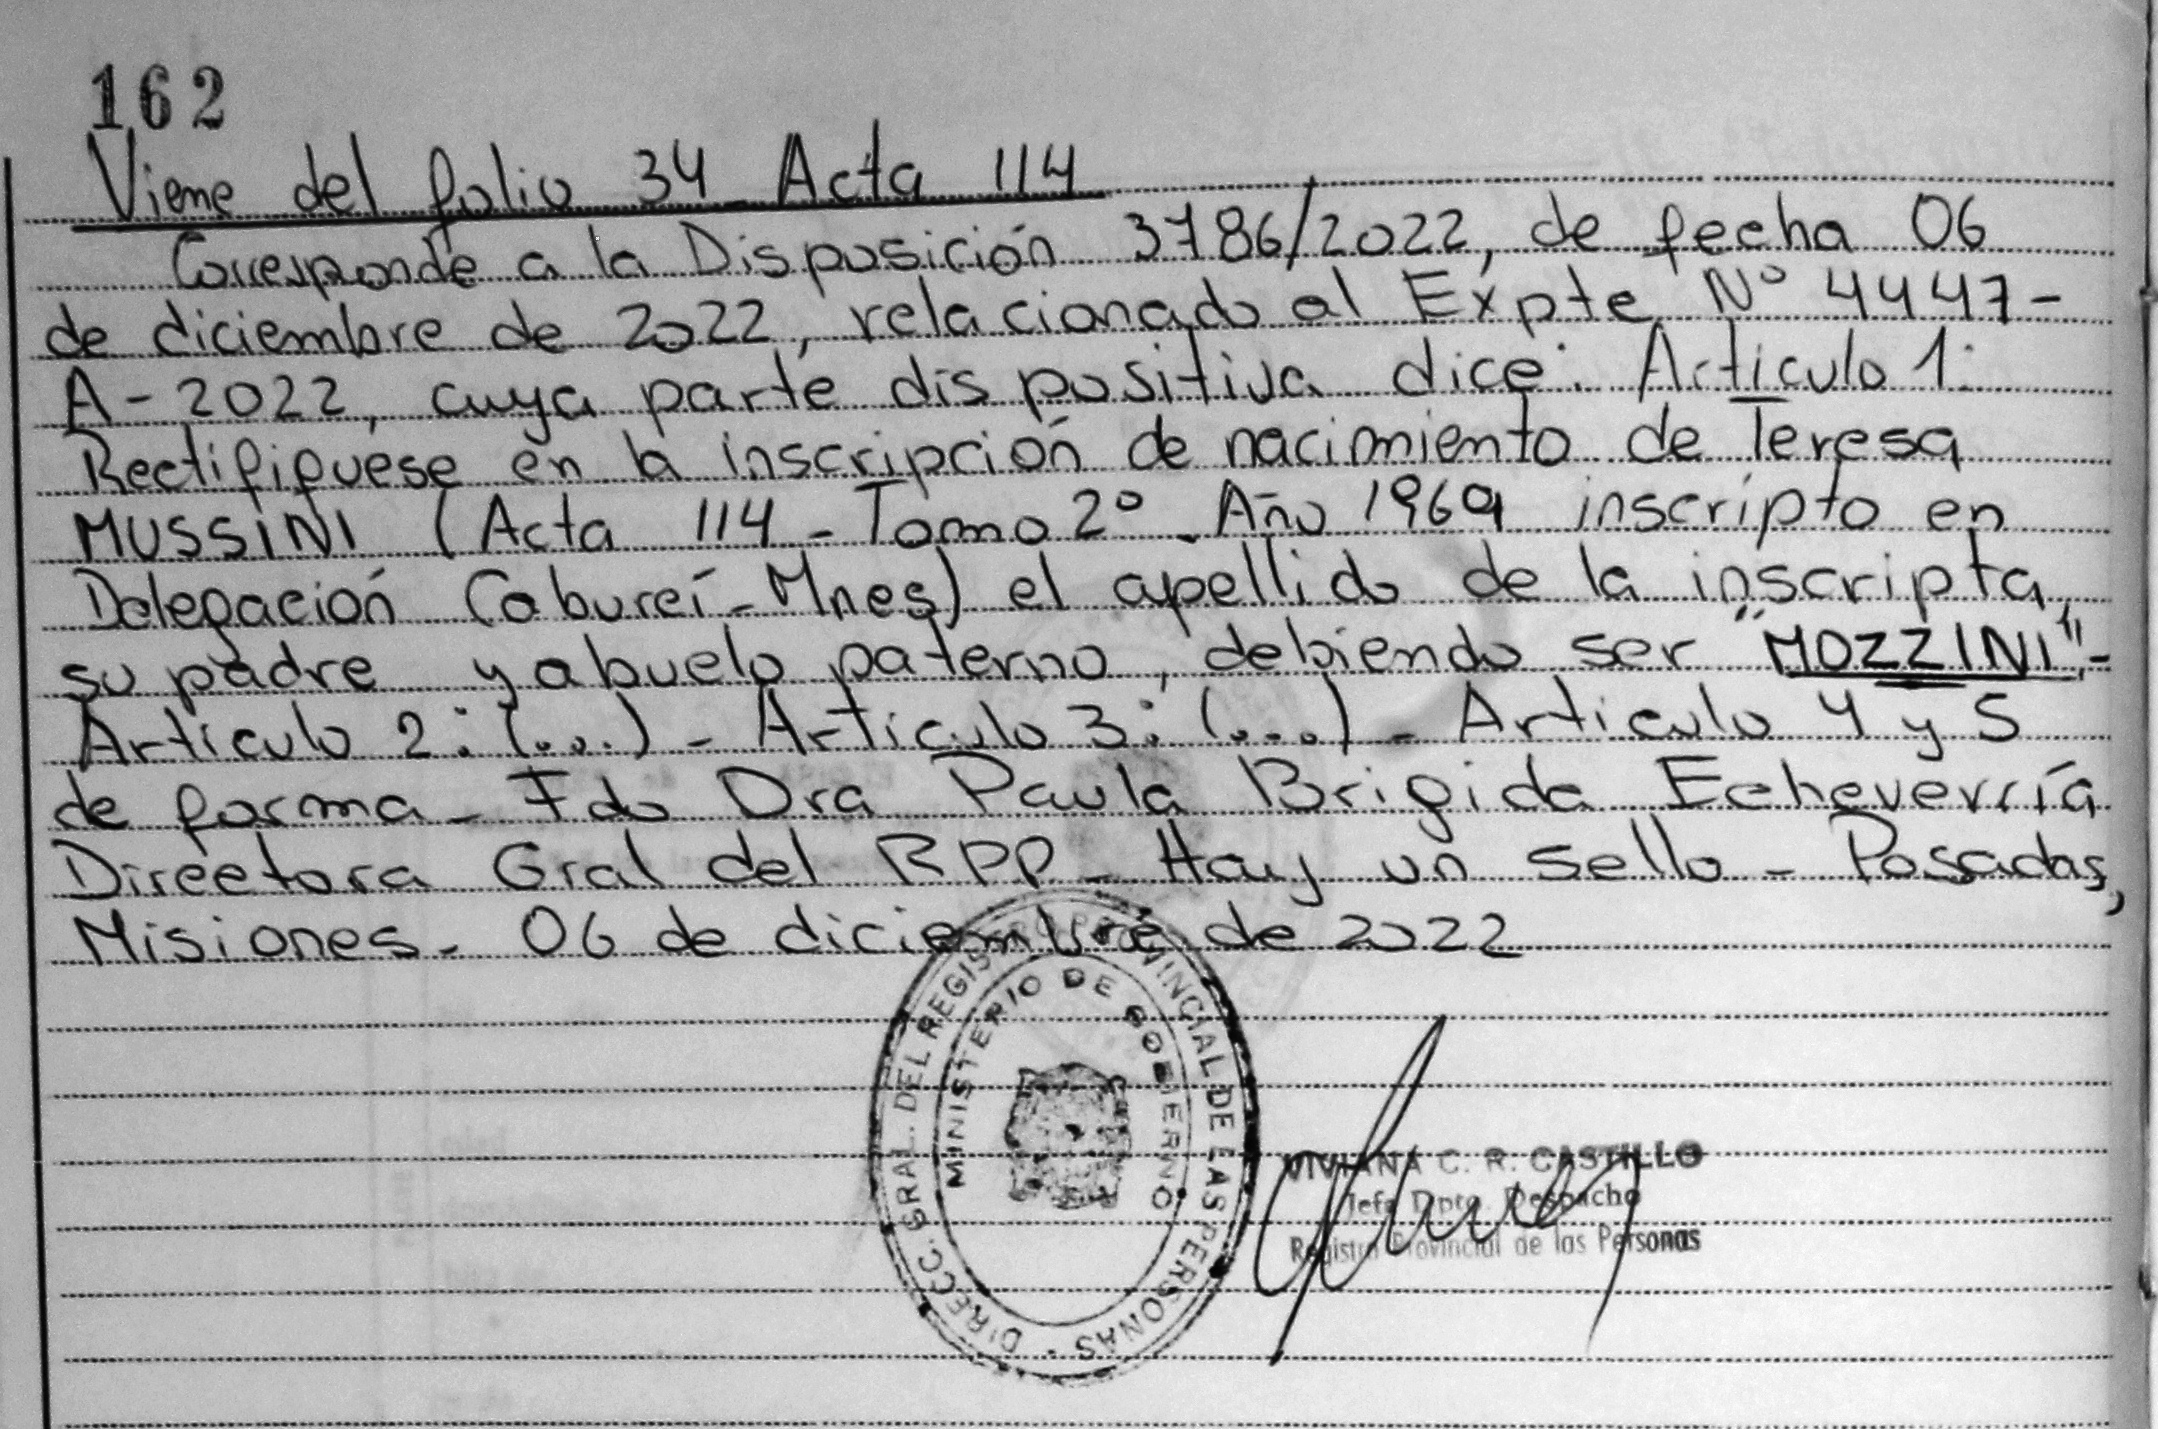 162
Viene del folio 34 Acta 114
Corresponde a la Disposición 3786/2022, de fecha 06
de diciembre de 2022, relacionado al Expte Nº 4447-
A-2022, cuya parte dispositiva dice: Artículo 1:
Rectifiquese en la inscripción de nacimiento de Teresa
MUSSINI (Acta 114 - Tomo 2º - Año 1969 inscripto en
Delegación Cobureí - Mnes) el apellido de la inscripta,
su padre y abuelo paterno, debiendo ser "MOZZINI"-
Artículo 2: (...) - Artículo 3: (...) - Artículo 4 y 5
de forma - Fdo Dra Paula Brigida Echeverría
Directora Gral del RPP - Hay un sello - Posadas,
Misiones - 06 de diciembre de 2022
DIRECC. GRAL. DEL REGISTRO PROVINCIAL DE LAS PERSONAS
MINISTERIO DE GOBIERNO
VIVIANA C. R. CASTILLO
Jefa Dpto. Despacho
Registro Provincial de las Personas